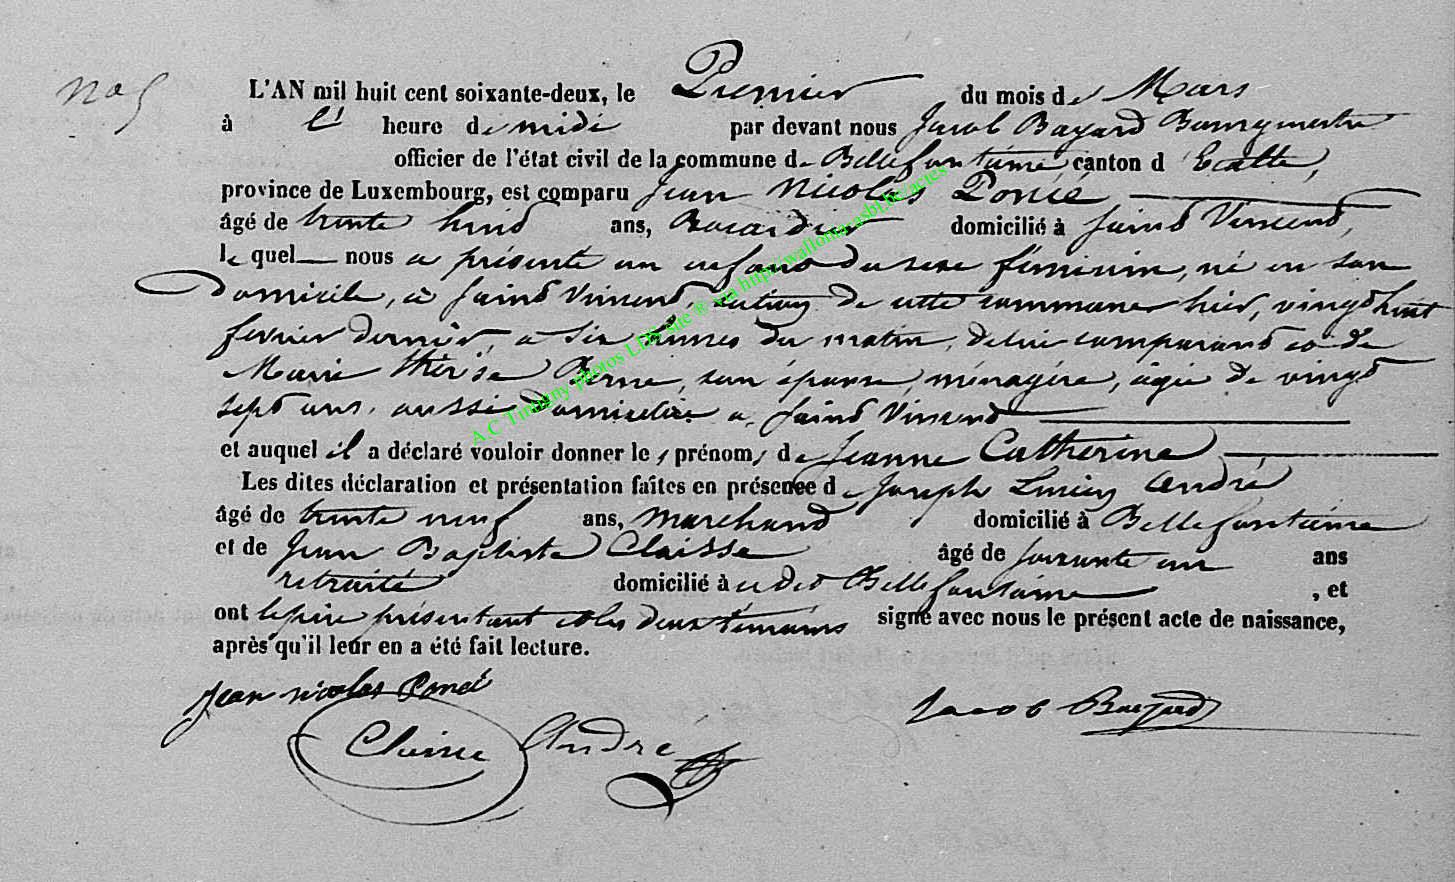 No 5
L'AN mil huit cent soixante-deux, le Premier du mois de Mars
à l' heure de midi par devant nous Jacob Bayard Bourgmestre
officier de l'état civil de la commune de Bellefontaine canton d'Etalle,
province de Luxembourg, est comparu Jean Nicolas Poncé
âgé de trente huit ans, domicilié à Saint Vincent,
lequel nous a présenté un enfant du sexe féminin, né en son
domicile, à Saint Vincent, section de cette commune hier, vingt huit
fevrier dernier, a six heures du matin, de lui comparant et de
Marie thérèse son épouse, ménagère, agée de vingt
sept ans, aussi domiciliée a Saint Vincent
et auquel il a déclaré vouloir donner les prénoms de Jeanne Catherine
Les dites déclaration et présentation faites en présence de Joseph Lucien André
âgé de trente neuf ans, marchand domicilié à Bellefontaine
et de Jean Baptiste Claisse âgé de soixante un ans
retraité domicilié à udit Bellefontaine, et
ont le père présentant et les deux témoins signé avec nous le présent acte de naissance,
après qu'il leur en a été fait lecture.
Jean nicolas Poncé
Jacob Bayard
Claisse André
A.C Tintigny photos LDS site ® via http://wallonia-asbl.be/actes